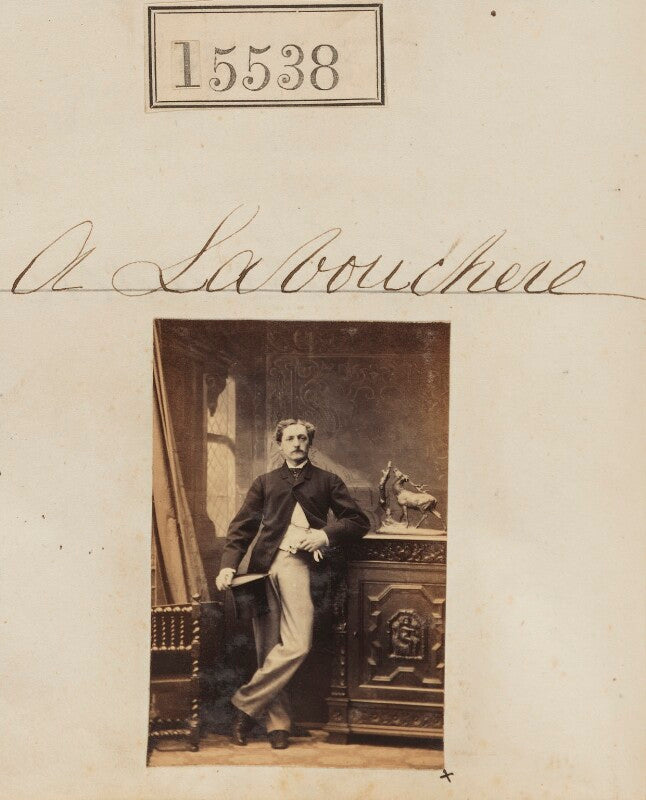 15538
A Labouchere